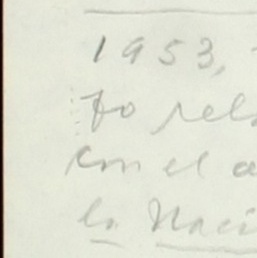 1953,
to rel
con el a
la Naci